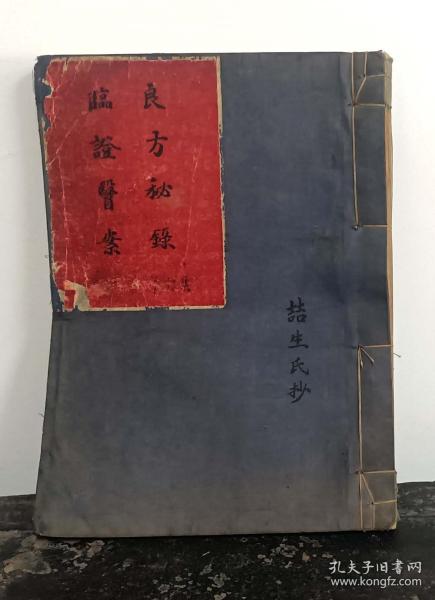 良方秘錄
臨證醫案
喆生氏抄
孔夫子旧书网
www.kongfz.com